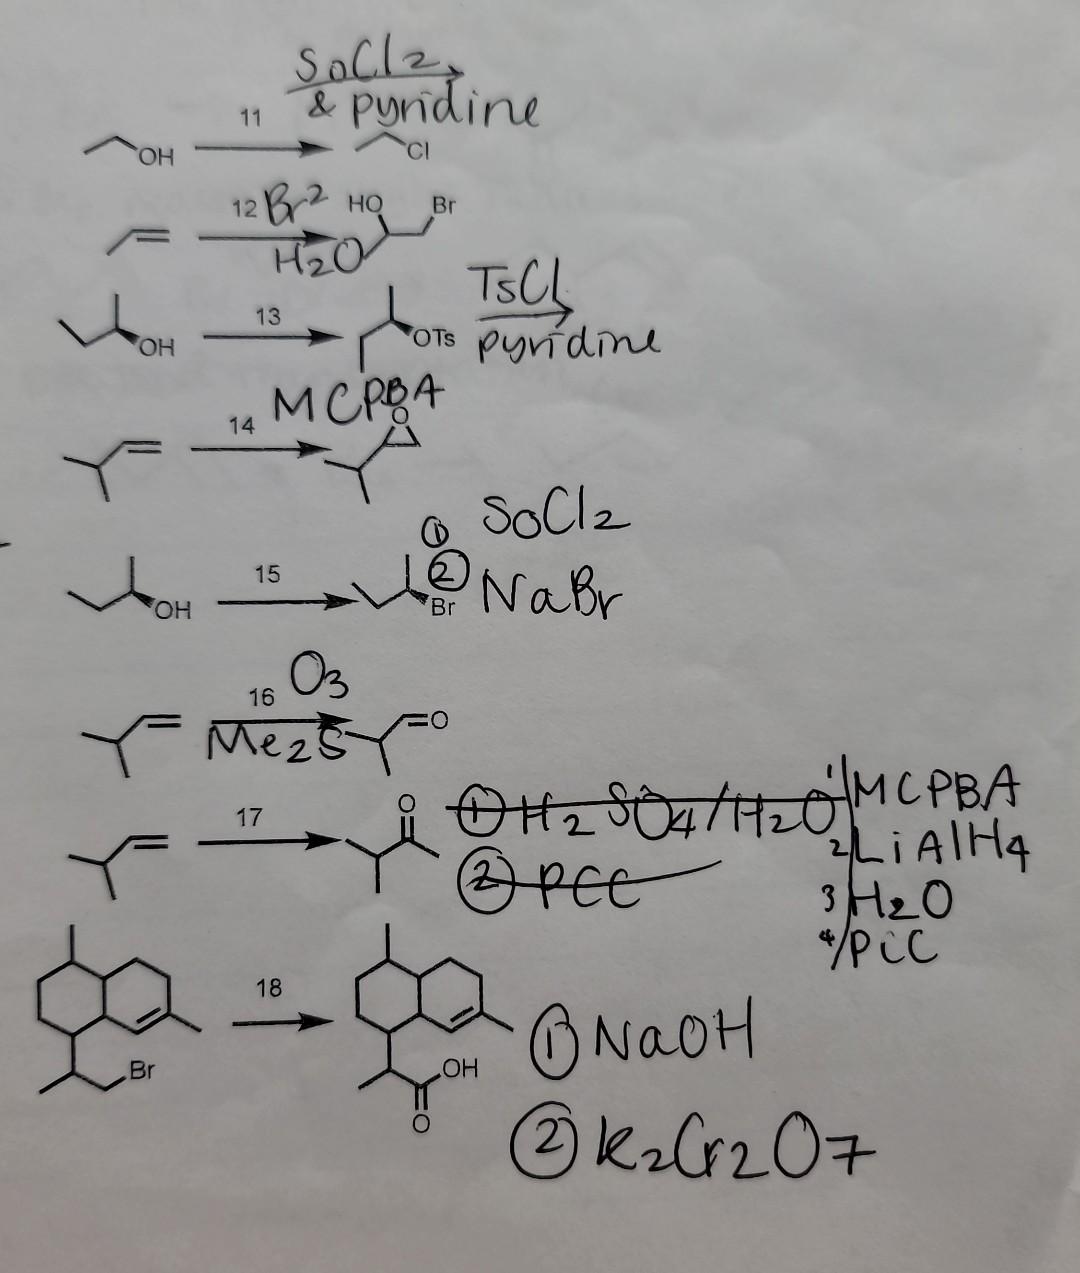 SoCl2
& pyridine
11
OH
Cl
12 Br2 HO Br
H2O
TsCl
13
OH
OTs pyridine
MCPBA
14
O
① SoCl2
15
OH
Br ② NaBr
O3
16
O
Me2S
17
O
① H2SO4/H2O
② PCC
1/ MCPBA
2/ LiAlH4
3/ H2O
4/ PCC
18
Br
OH
O
① NaOH
② K2Cr2O7